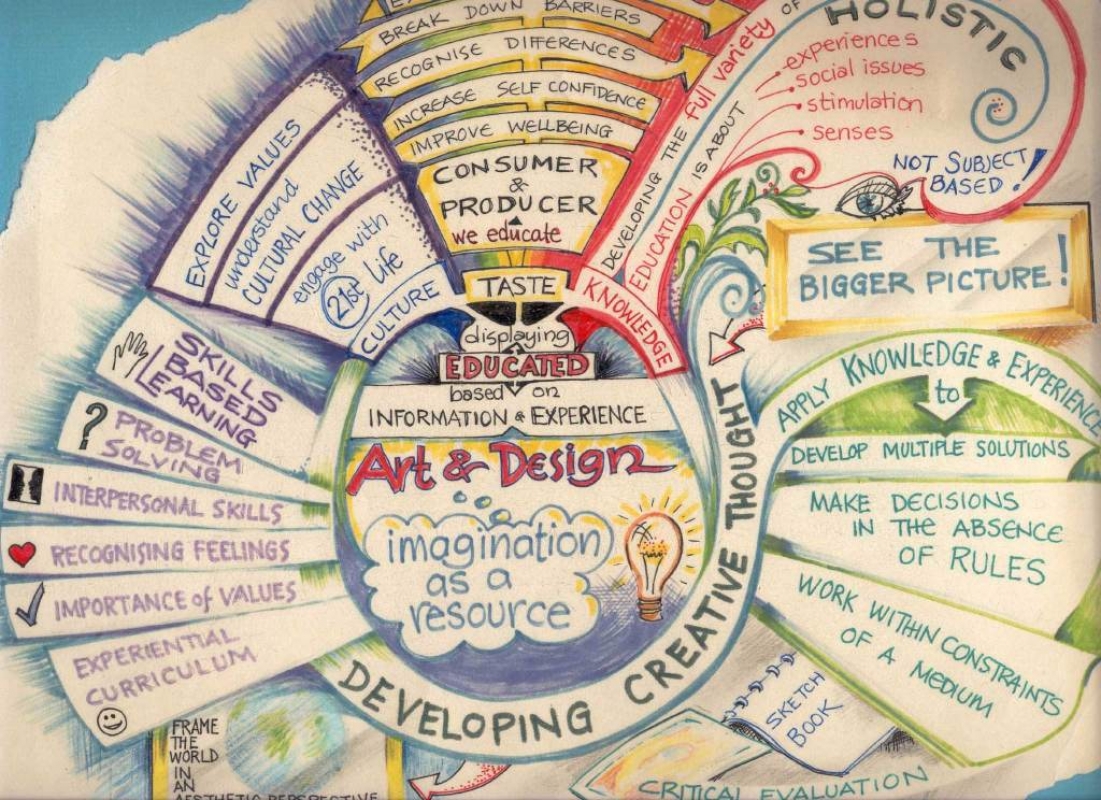 BREAK DOWN BARRIERS
RECOGNISE DIFFERENCES
INCREASE SELF CONFIDENCE
IMPROVE WELLBEING
CONSUMER
&
PRODUCER
we educate
TASTE
EXPLORE VALUES
understand
CULTURAL CHANGE
engage with
21st Life
CULTURE
DEVELOPING THE full variety OF
EDUCATION IS ABOUT
KNOWLEDGE
HOLISTIC
experiences
social issues
stimulation
senses
NOT SUBJECT
BASED!
SEE THE
BIGGER PICTURE!
displaying
EDUCATED
based on
INFORMATION & EXPERIENCE
Art & Design
imagination
as a
resource
DEVELOPING CREATIVE THOUGHT
SKILLS
BASED
LEARNING
?
PROBLEM
SOLVING
INTERPERSONAL SKILLS
RECOGNISING FEELINGS
IMPORTANCE of VALUES
EXPERIENTIAL
CURRICULUM
APPLY KNOWLEDGE & EXPERIENCE
to
DEVELOP MULTIPLE SOLUTIONS
MAKE DECISIONS
IN THE ABSENCE
OF RULES
WORK WITHIN CONSTRAINTS
OF A MEDIUM
SKETCH
BOOK
CRITICAL EVALUATION
FRAME
THE
WORLD
IN
AN
AESTHETIC PERSPECTIVE